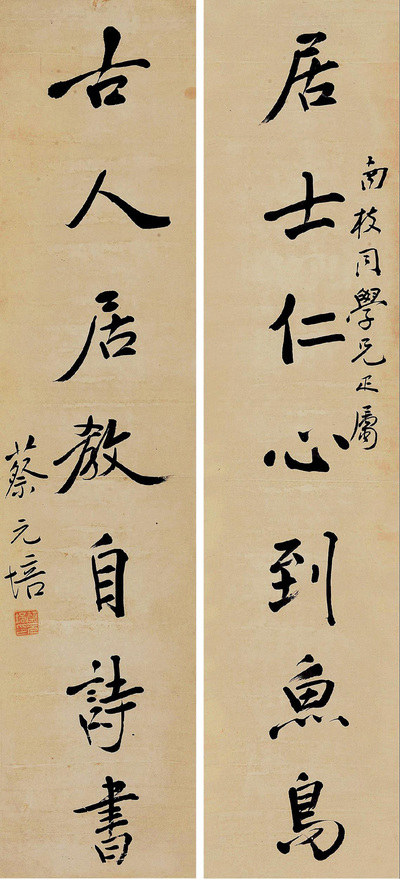 南枝同學兄正屬
居士仁心到魚鳥
古人居教自詩書
蔡元培